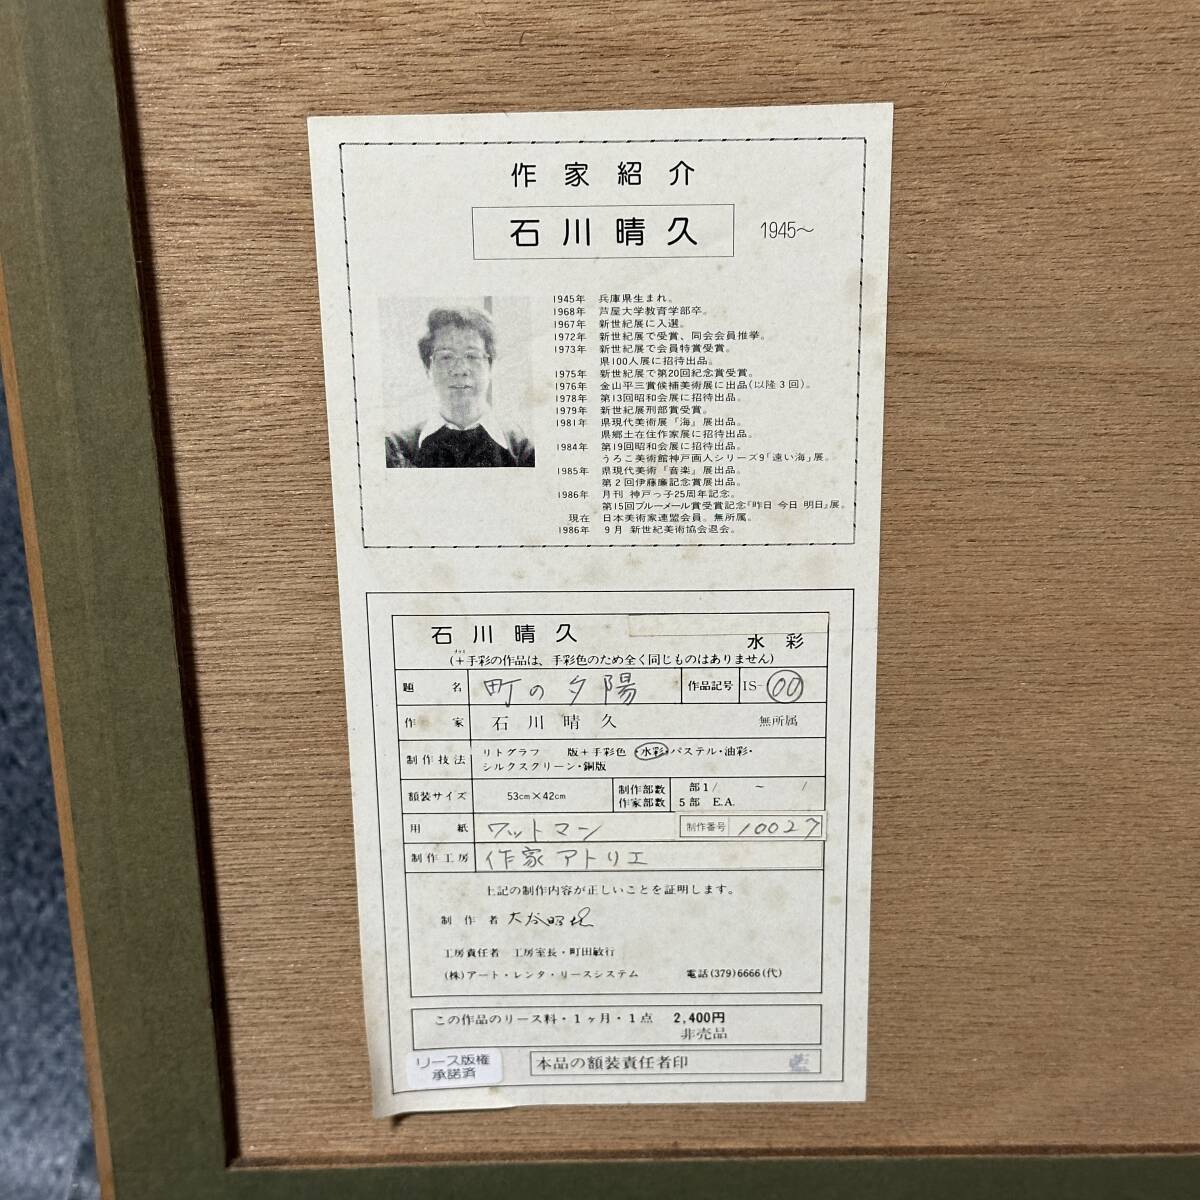 作家紹介
石川晴久 1945〜
1945年 兵庫県生まれ。
1968年 芦屋大学教育学部卒。
1967年 新世紀展に入選。
1972年 新世紀展で受賞、同会会員推挙。
1973年 新世紀展で会員特賞受賞。
県100人展に招待出品。
1975年 新世紀展で第20回紀念賞受賞。
1976年 金山平三賞候補美術展に出品(以降3回)。
1978年 第13回昭和会展に招待出品。
1979年 新世紀展刑部賞受賞。
1981年 県現代美術展「海」展出品。
県郷土在住作家展に招待出品。
1984年 第19回昭和会展に招待出品。
うろこ美術館神戸画人シリーズ9「遠い海」展。
1985年 県現代美術「音楽」展出品。
第2回伊藤廉記念賞展出品。
1986年 月刊 神戸っ子25周年記念。
第15回ブルーメール賞受賞記念『昨日 今日 明日』展。
現在 日本美術家連盟会員。無所属。
1986年 9月 新世紀美術協会退会。
石川晴久 水彩
(+手彩の作品は、手彩色のため全く同じものはありません)
題名 町の夕陽 作品記号 IS-00
作家 石川晴久 無所属
制作技法 リトグラフ 版+手彩色・水彩・パステル・油彩・
シルクスクリーン・銅版
額装サイズ 53cm×42cm 制作部数 部1/ 〜 /
作家部数 5部 E.A.
用紙 ワットマン 制作番号 10027
制作工房 作家アトリエ
上記の制作内容が正しいことを証明します。
制作者
工房責任者 工房室長・町田敏行
(株)アート・レンタ・リースシステム 電話(379)6666(代)
この作品のリース料・1ヶ月・1点 2,400円
非売品
リース版権
承諾済
本品の額装責任者印